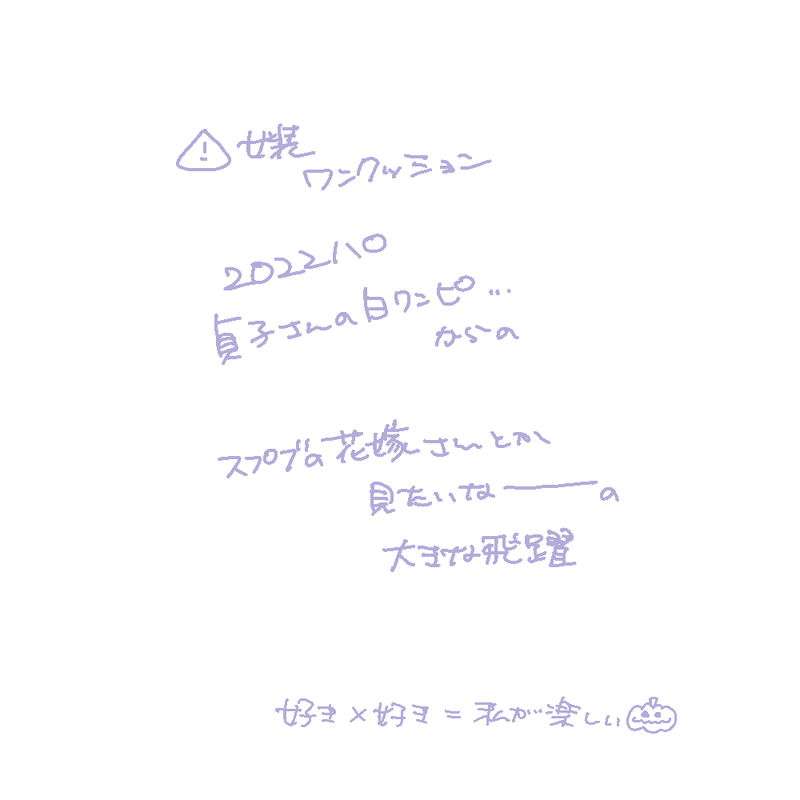 女装
ワンクッション
2022.10
貞子さんの白ワンピ…
からの
スプブの花嫁さんとか
見たいなーの
大きな飛躍
好き×好き=私が楽しい